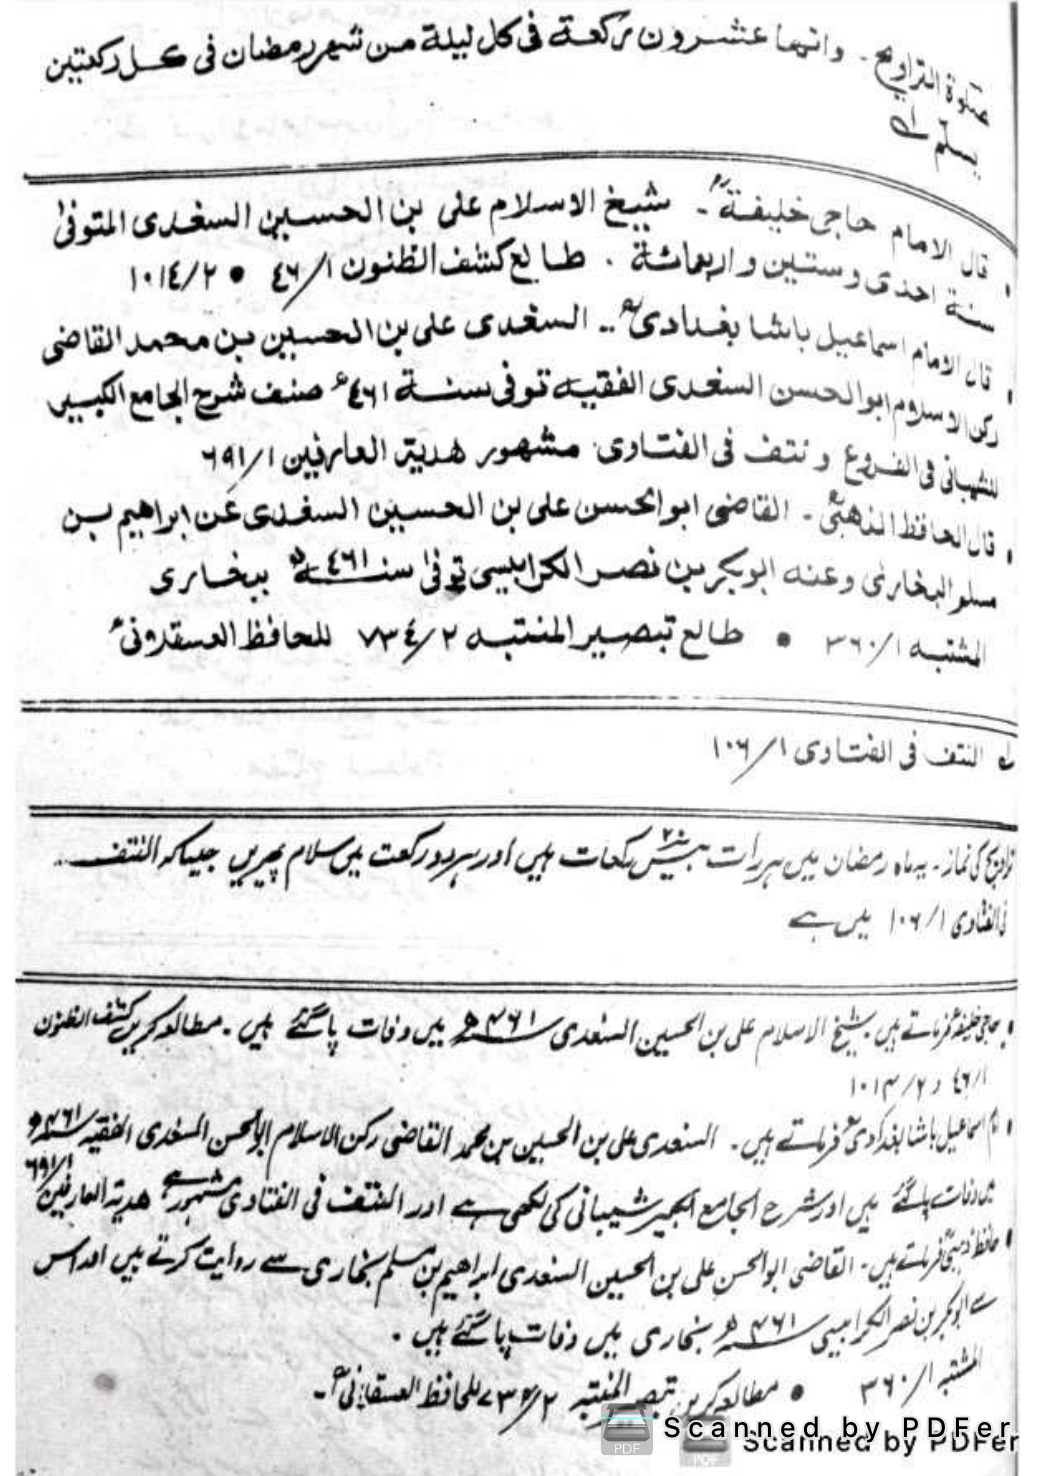 صلوة التراويح ۔ وانها عشرون ركعة فى كل ليلة من شهر رمضان فى كل ركعتين
يسلم
قال الامام حاجى خليفة ۔ شيخ الاسلام على بن الحسين السغدى المتوفى
سنة احدى وستين واربعمائة . طالع كشف الظنون ٤٦/١ • ١٠١٤/٢
قال الامام اسماعيل باشا بغدادى ۔۔ السغدى على بن الحسين بن محمد القاضى
ركن الاسلام ابو الحسن السغدى الفقيه توفى سنة ٤٦١ صنف شرح الجامع الكبير
للشيبانى فى الفروع و نتف فى الفتاوى مشهور هدية العارفين ٦٩١/١
قال الحافظ الذهبى ۔ القاضى ابو الحسن على بن الحسين السغدى عن ابراهيم بن
مسلم البخارى وعنه ابوبكر بن نصر الكرابيسى توفى سنة ٤٦١ ببخارى
المشتبه ٣٦٠/١ • طالع تبصير المنتبه ٧٣٤/٢ للحافظ العسقلانى
النتف فى الفتاوى ١٠٦/١
تراویح کی نماز ۔ یہ ماہ رمضان میں ہر رات بیس ٢٠ رکعات ہیں اور ہر دو رکعت میں سلام پھیریں جیساکہ النتف
فی الفتاوی ١٠٦/١ میں ہے
حاجی خلیفہ فرماتے ہیں ۔ شیخ الاسلام علی بن الحسین السغدی ٤٦١ھ میں وفات پاگئے ہیں ۔ مطالعہ کریں کشف الظنون
٤٦/١ و ١٠١٤/٢
امام اسماعیل باشا بغدادی فرماتے ہیں ۔ السغدی علی بن الحسین بن محمد القاضی رکن الاسلام ابو الحسن السغدی الفقیہ ٤٦١ھ
میں وفات پاگئے ہیں اور شرح الجامع الکبیر شیبانی کی لکھی ہے اور النتف فی الفتاوی مشہور ہے ھدیۃ العارفین ٦٩١/١
حافظ ذہبی فرماتے ہیں ۔ القاضی ابو الحسن علی بن الحسین السغدی ابراھیم بن مسلم بخاری سے روایت کرتے ہیں اور اس
سے ابوبکر بن نصر الکرابیسی ٤٦١ھ بخاری میں وفات پاگئے ہیں ۔
المشتبہ ٣٦٠/١ • مطالعہ کریں تبصیر المنتبہ ٧٣٤/٢ للحافظ العسقلانی ۔
Scanned by PDFer
Scanned by PDFer